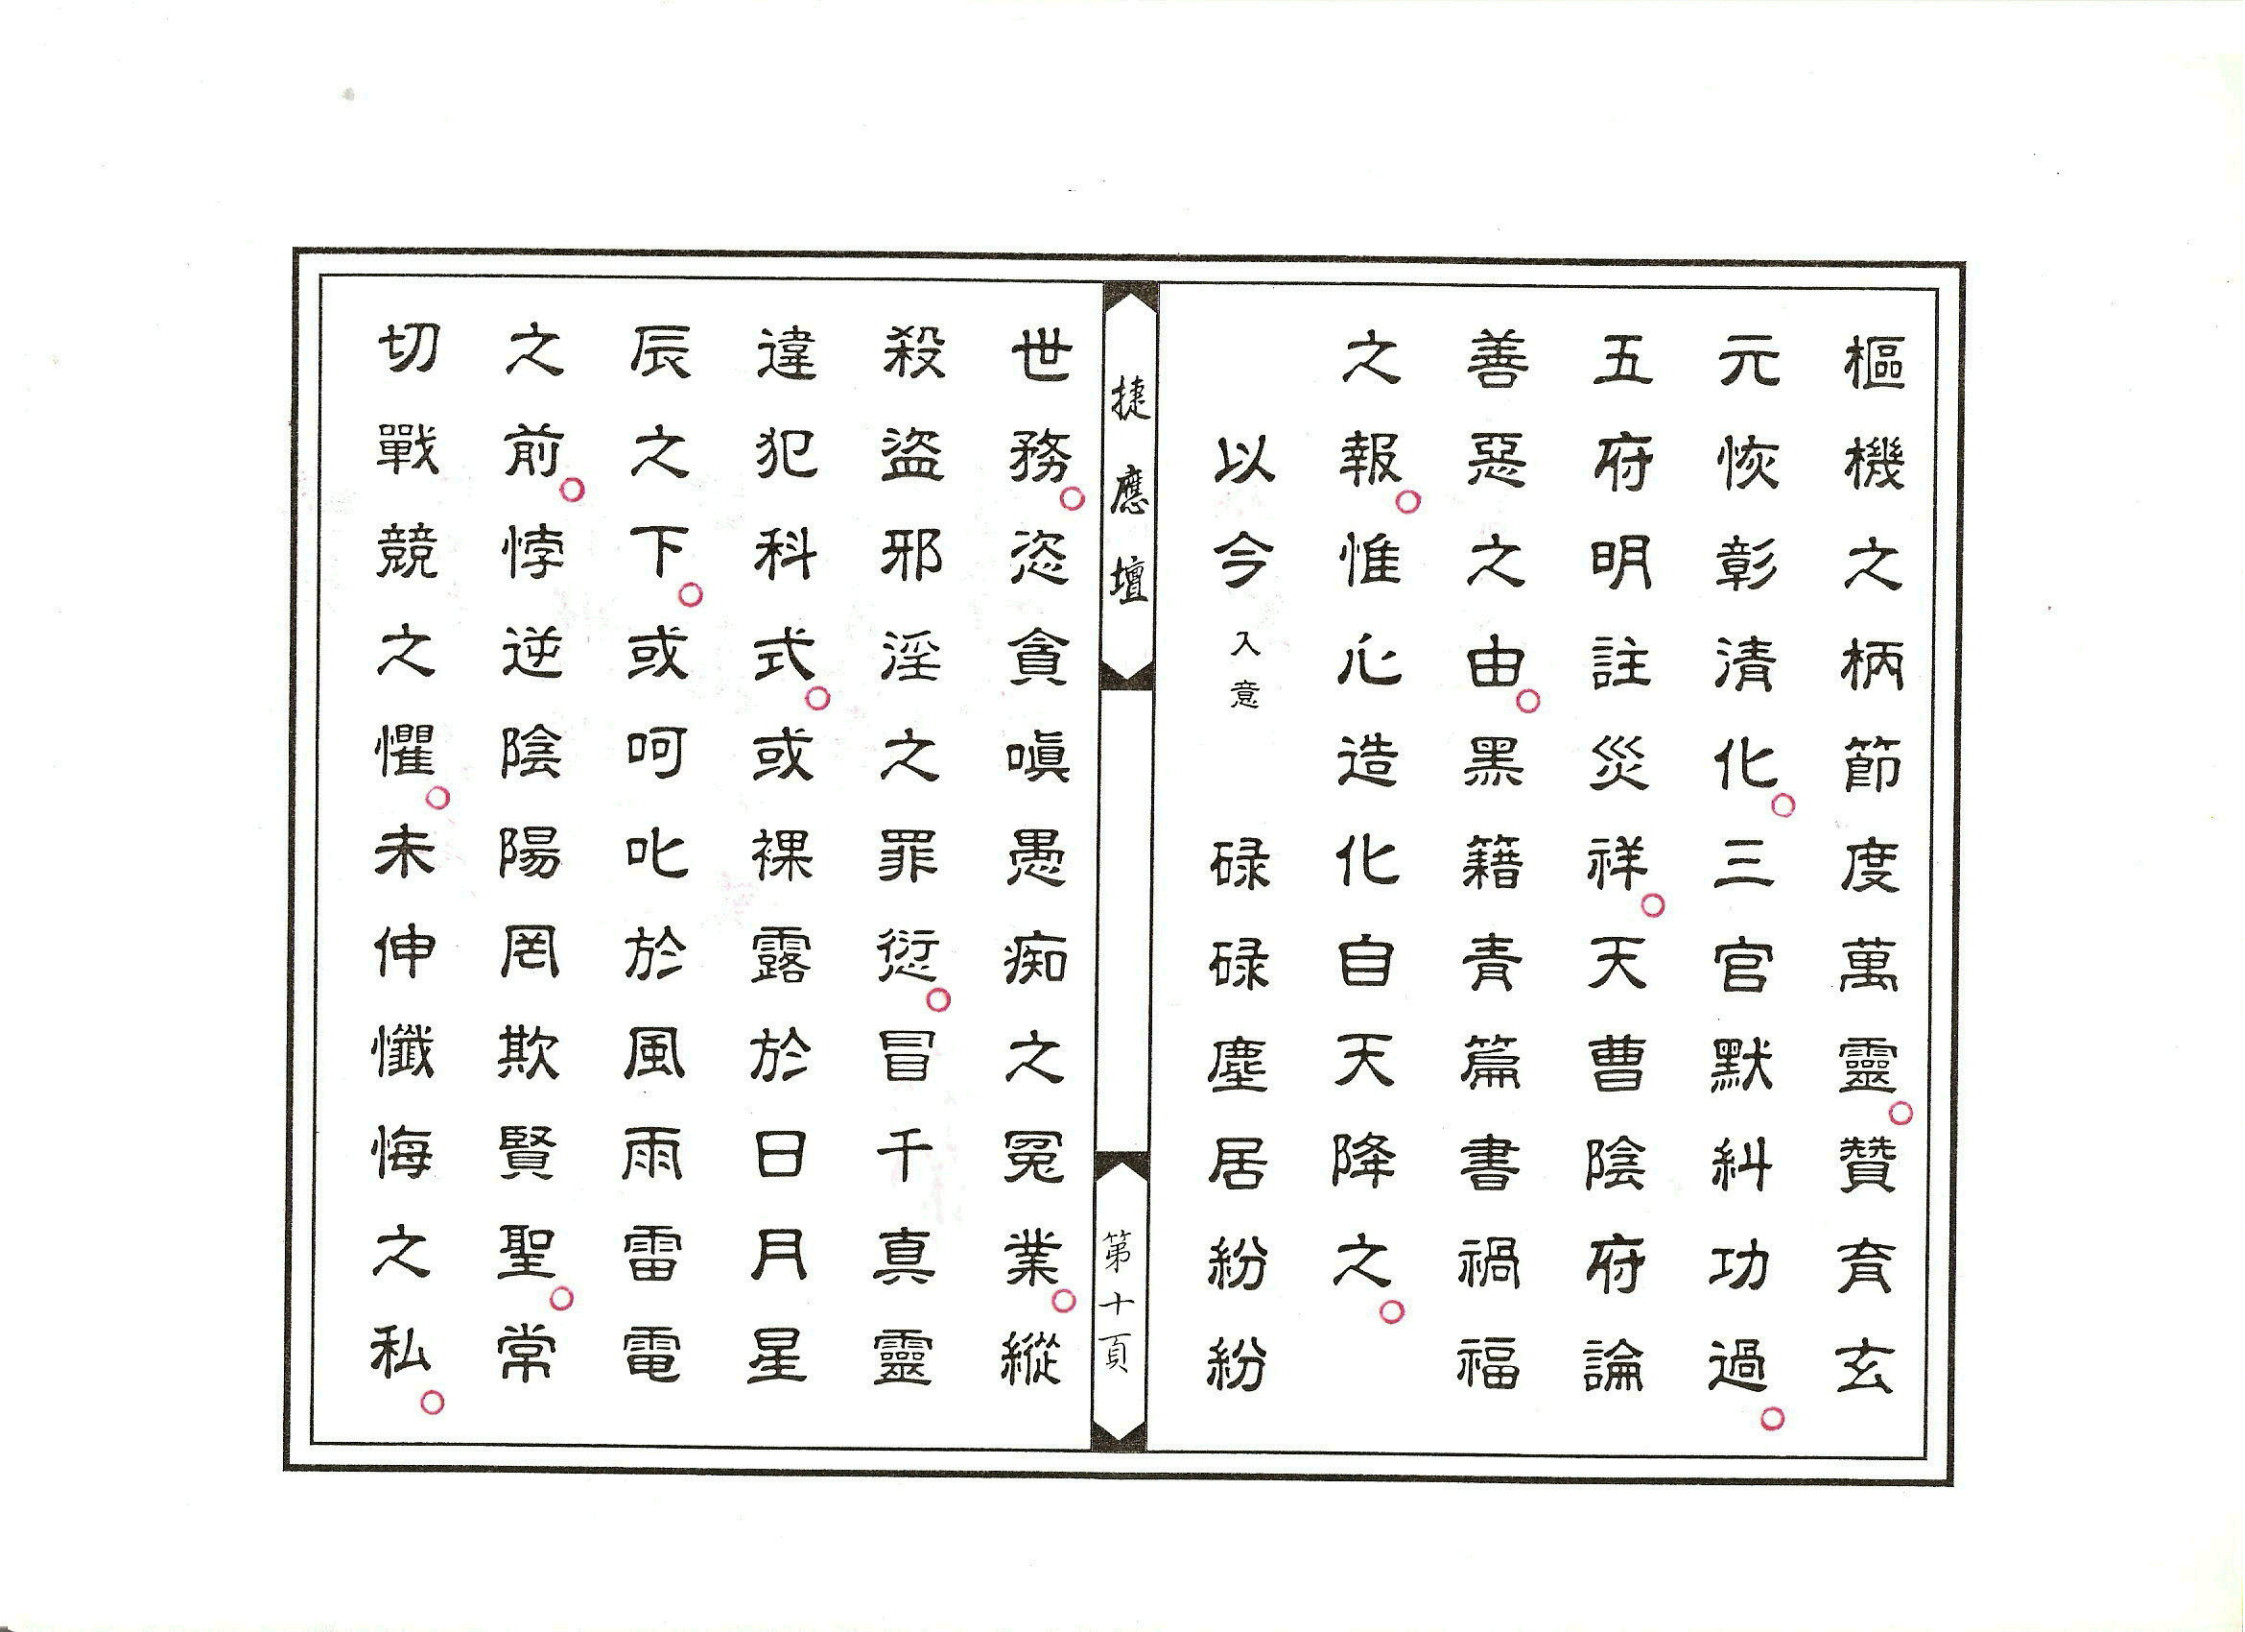 樞機之柄節度萬靈○贊育玄
元恢彰清化○三官默糾功過○
五府明註災祥○天曹陰府論
善惡之由○黑籍青篇書禍福
之報○惟心造化自天降之○
以今入意　碌碌塵居紛紛
捷應壇
第十頁
世務○恣貪嗔愚痴之冤業○縱
殺盜邪淫之罪愆○冒千真靈
違犯科式○或裸露於日月星
辰之下○或呵叱於風雨雷電
之前○悖逆陰陽罔欺賢聖○常
切戰競之懼○未伸懺悔之私○